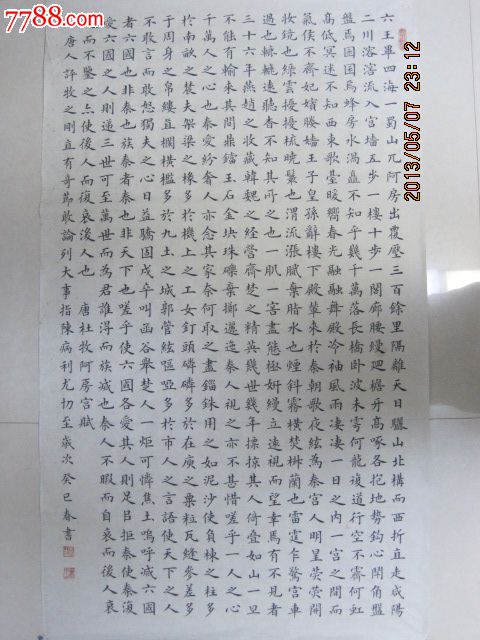 7788.com
2013/05/07 23:12
六王畢四海一蜀山兀阿房出覆壓三百餘里隔離天日驪山北構而西折直走咸陽
二川溶溶流入宮墻五步一樓十步一閣廊腰縵廻檐牙高啄各抱地勢鈎心鬥角盤
盤焉囷囷焉蜂房水渦矗不知乎幾千萬落長橋卧波未雩何龍複道行空不霽何虹
高低冥迷不知西東歌臺暖響春光融融舞殿冷袖風雨凄凄一日之内一宮之間而
氣侯不齊妃嬪媵嬙王子皇孫辭樓下殿輦來於秦朝歌夜絃為秦宮人明星熒熒開
妝鏡也綠雲擾擾梳曉鬟也渭流漲膩棄脂水也煙斜霧橫焚椒蘭也雷霆乍驚宮車
過也轆轆遠聽杳不知其所之也一肌一容盡態極妍縵立遠視而望幸焉有不見者
三十六年燕趙之收藏韓魏之經營齊楚之精英幾世幾年摽掠其人倚疊如山一旦
不能有輸來其間鼎鐺玉石金块珠礫棄擲邐迤秦人視之亦不甚惜嗟乎一人之心
千萬人之心也秦愛紛奢人亦念其家奈何取之盡錙銖用之如泥沙使負棟之柱多
於南畝之農夫架梁之椽多於機上之工女釘頭磷磷多於在庾之粟粒瓦縫參差多
于周身之帛縷直欄橫檻多於九土之城郭管絃嘔啞多於市人之言語使天下之人
不敢言而敢怒獨夫之心日益驕固戍卒叫函谷舉楚人一炬可憐焦土嗚呼滅六國
者六國也非秦也族秦者秦也非天下也嗟乎使六國各愛其人則足㠯拒秦使秦復
愛六國之人則遞三世可至萬世而為君誰得而族滅也秦人不暇而自哀而後人哀
之而不鑒之亦使後人而復哀後人也 唐杜牧阿房宮賦
唐人評牧之剛直有奇節敢論列大事指陳病利尤切至歲次癸巳春書